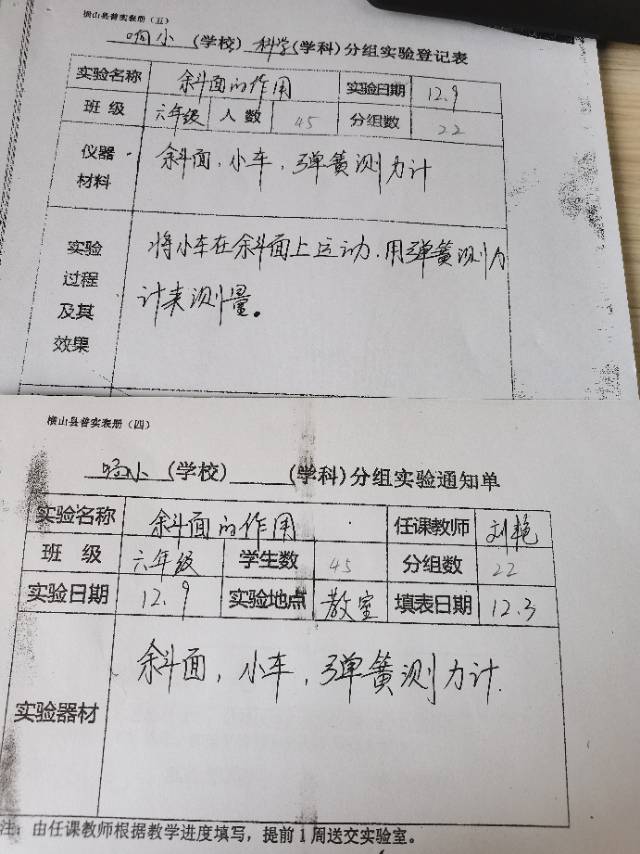 横山县普实表册（五）
响小（学校）科学（学科）分组实验登记表
实验名称 斜面的作用 实验日期 12.9
班 级 六年级 人 数 45 分组数 22
仪器材料 斜面，小车，弹簧测力计
实验过程及其效果 将小车在斜面上运动，用弹簧测力
计来测量。
横山县普实表册（四）
响小（学校）（学科）分组实验通知单
实验名称 斜面的作用 任课教师 刘艳
班 级 六年级 学生数 45 分组数 22
实验日期 12.9 实验地点 教室 填表日期 12.3
实验器材 斜面，小车，弹簧测力计.
注：由任课教师根据教学进度填写，提前1周送交实验室。